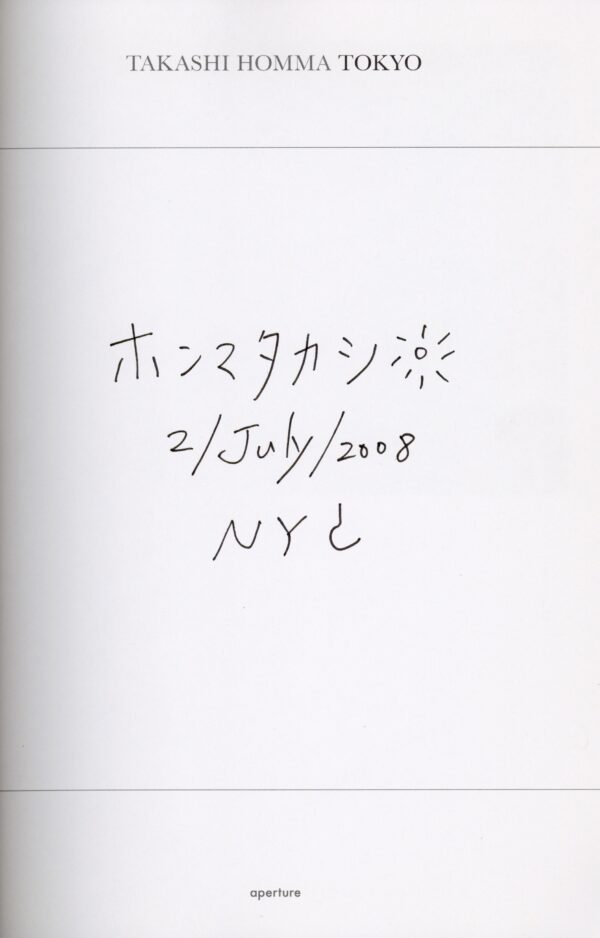 TAKASHI HOMMA TOKYO
ホンマタカシ
2/July/2008
NYC
aperture